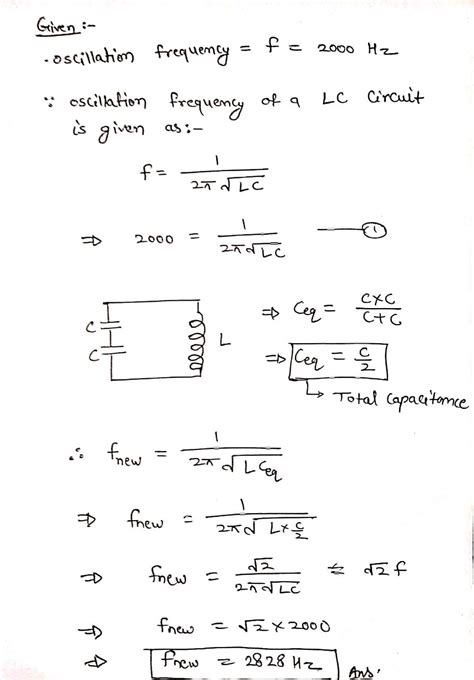 Given :-
· oscillation frequency = f = 2000 Hz
∵ oscillation frequency of a LC Circuit
is given as:-
f = 1 / 2π√LC
⇒ 2000 = 1 / 2π√LC ——— ①
C
C
L
⇒ Ceq = C×C / C+C
⇒ Ceq = C / 2
↳ Total Capacitance
∴ fnew = 1 / 2π√L Ceq
⇒ fnew = 1 / 2π√L×C/2
⇒ fnew = √2 / 2π√LC = √2 f
⇒ fnew = √2 × 2000
⇒ fnew = 2828 Hz Ans.